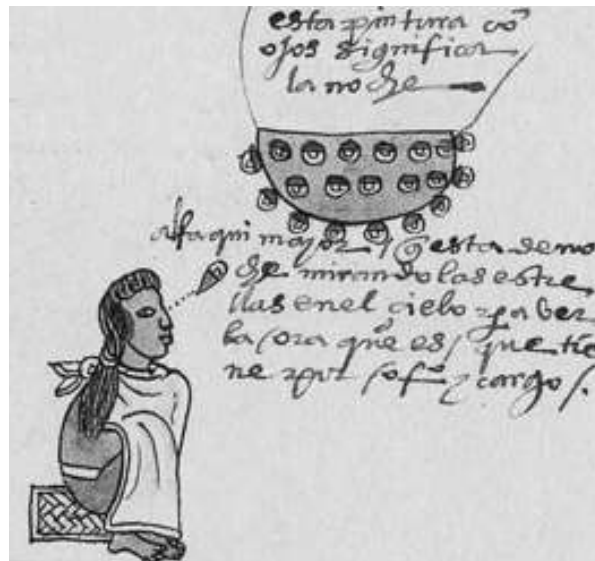 esta pintura cō
ojos significa
la noche
alfaqui mayor / q̄ esta de no
che mirando las estre
llas en el cielo para ver
la ora que es / que tie
ne por ofiº y cargo /.